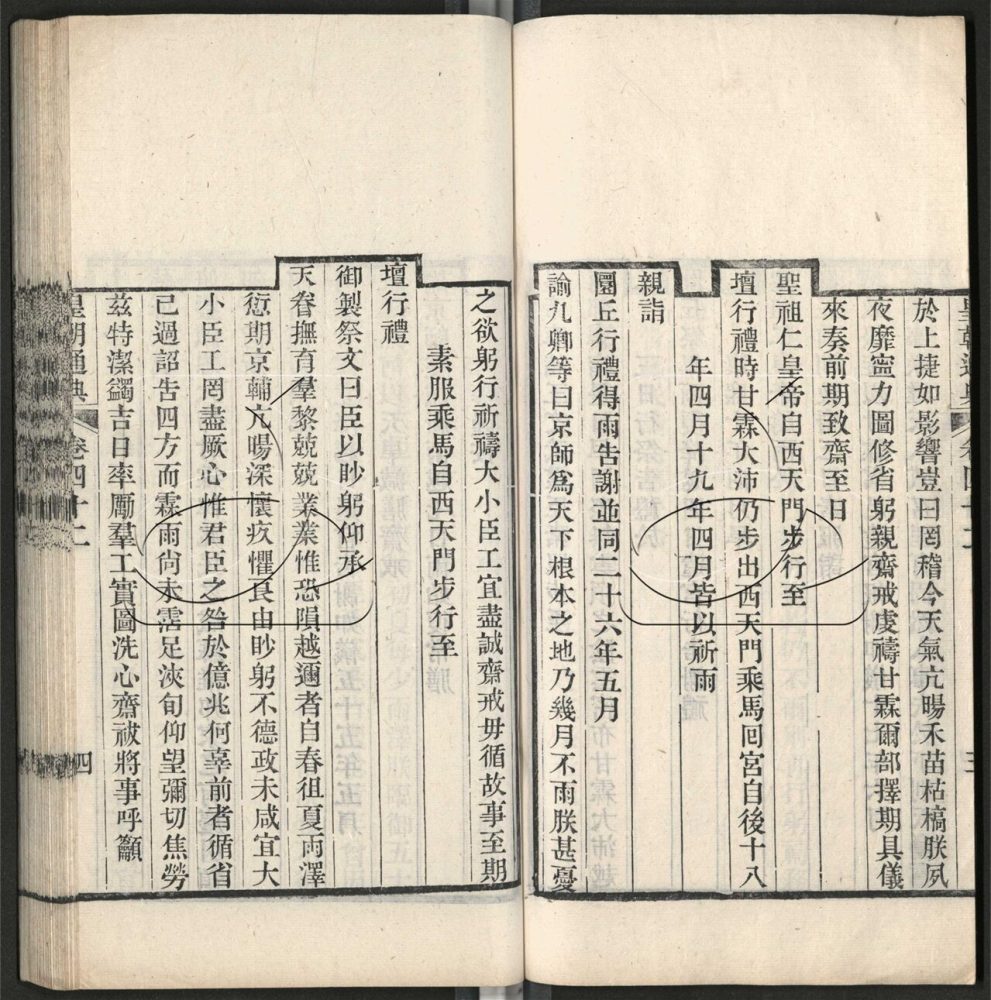 皇朝通典
卷四十二
三
於上捷如影響豈曰罔稽今天氣亢暘禾苗枯槁朕夙
夜靡寧力圖修省躬親齋戒虔禱甘霖爾部擇期具儀
來奏前期致齋至日
聖祖仁皇帝自西天門步行至
壇行禮時甘霖大沛仍步出西天門乘馬回宮自後十八
年四月十九年四月皆以祈雨
親詣
圜丘行禮得雨告謝並同二十六年五月
諭九卿等曰京師爲天下根本之地乃幾月不雨朕甚憂
之欲躬行祈禱大小臣工宜盡誠齋戒毋循故事至期
素服乘馬自西天門步行至
壇行禮
御製祭文曰臣以眇躬仰承
天眷撫有羣黎兢兢業業惟恐隕越邇者自春徂夏雨澤
愆期京輔亢暘深懷疚懼良由眇躬不德政未咸宜大
小臣工罔盡厥心惟君臣之咎於億兆何辜前者循省
己過詔告四方而霖雨尙未霑足浹旬仰望彌切焦勞
茲特潔蠲吉日率厲羣工實圖洗心齋祓將事呼籲
皇朝通典
卷四十二
四